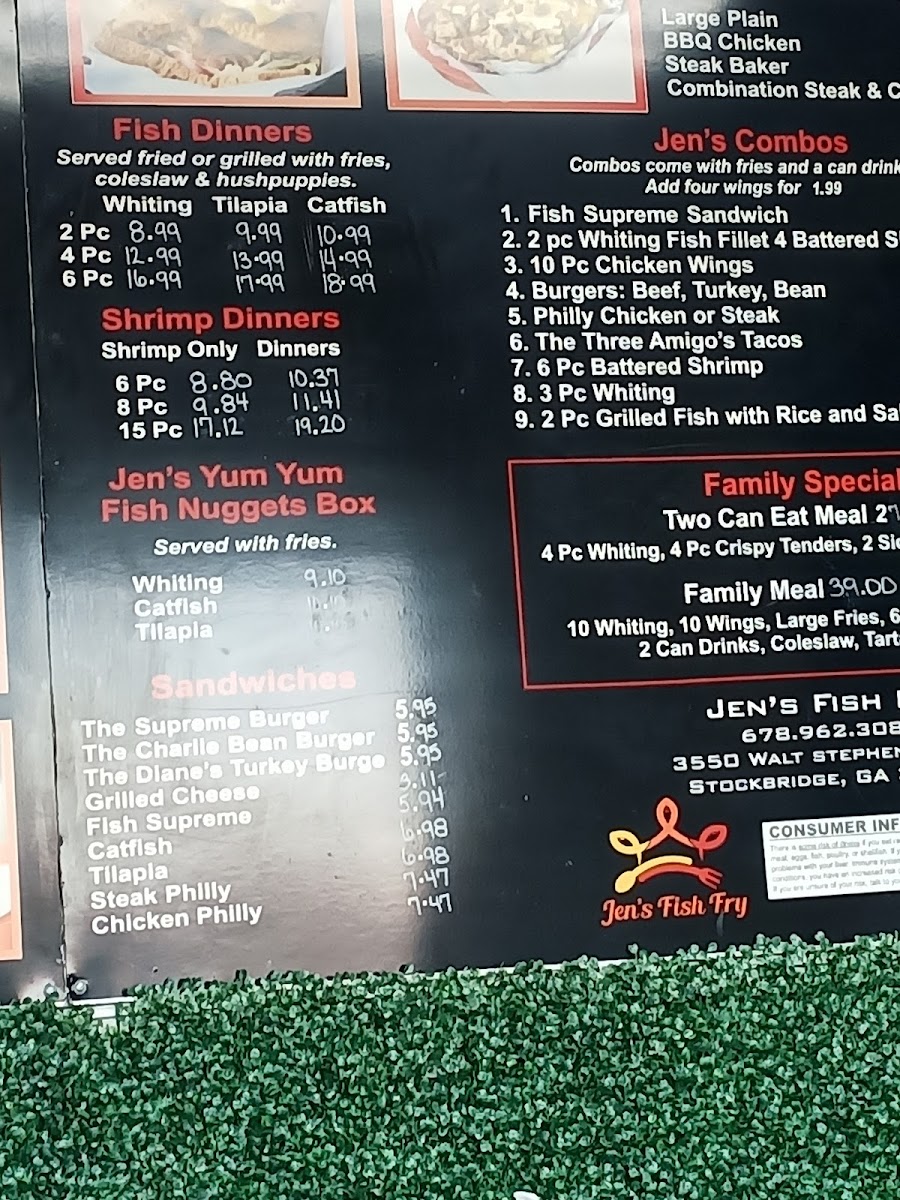 Large Plain
BBQ Chicken
Steak Baker
Combination Steak & C
Fish Dinners
Served fried or grilled with fries,
coleslaw & hushpuppies.
Whiting Tilapia Catfish
2 Pc 8.99 9.99 10.99
4 Pc 12.99 13.99 14.99
6 Pc 16.99 17.99 18.99
Shrimp Dinners
Shrimp Only Dinners
6 Pc 8.80 10.37
8 Pc 9.84 11.41
15 Pc 17.12 19.20
Jen's Yum Yum
Fish Nuggets Box
Served with fries.
Whiting 9.10
Catfish
Tilapia
Sandwiches
The Supreme Burger 5.95
The Charlie Bean Burger 5.95
The Diane's Turkey Burge 5.95
Grilled Cheese 3.11
Fish Supreme 5.94
Catfish 6.98
Tilapia 6.98
Steak Philly 7.47
Chicken Philly 7.47
Jen's Combos
Combos come with fries and a can drink
Add four wings for 1.99
1. Fish Supreme Sandwich
2. 2 pc Whiting Fish Fillet 4 Battered S
3. 10 Pc Chicken Wings
4. Burgers: Beef, Turkey, Bean
5. Philly Chicken or Steak
6. The Three Amigo's Tacos
7. 6 Pc Battered Shrimp
8. 3 Pc Whiting
9. 2 Pc Grilled Fish with Rice and Sa
Family Special
Two Can Eat Meal
4 Pc Whiting, 4 Pc Crispy Tenders, 2 Si
Family Meal 39.00
10 Whiting, 10 Wings, Large Fries, 6
2 Can Drinks, Coleslaw, Tart
JEN'S FISH
678.962.308
3550 WALT STEPHEN
STOCKBRIDGE, GA
Jen's Fish Fry
CONSUMER INF